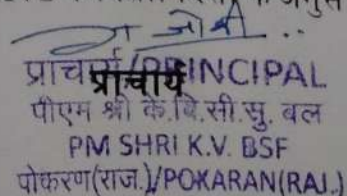 के अनु
जोशी
प्राचार्य/PRINCIPAL
प्राचार्य
पीएम श्री के.वि.सी.सु. बल
PM SHRI K.V. BSF
पोकरण(राज.)/POKARAN(RAJ.)